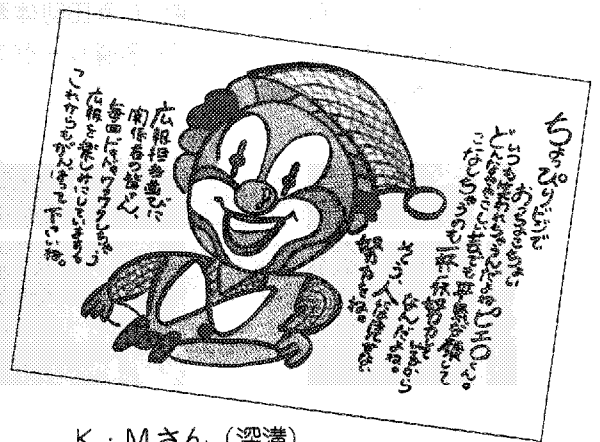 ちょっぴりドジで
おっちょこちょい
いつも笑われちゃうんだよねピエロくん。
どんなむずかしい芸でも平気な顔して
こなしちゃうのも一杯練習したから
なんだよね。
そう、人には見せない
努力を。
広報担当並びに
関係者の皆さん、
毎回ドキドキワクワクしちゃう
広報を楽しみにしています。
これからもがんばって下さいね。
K・Mさん（深溝）